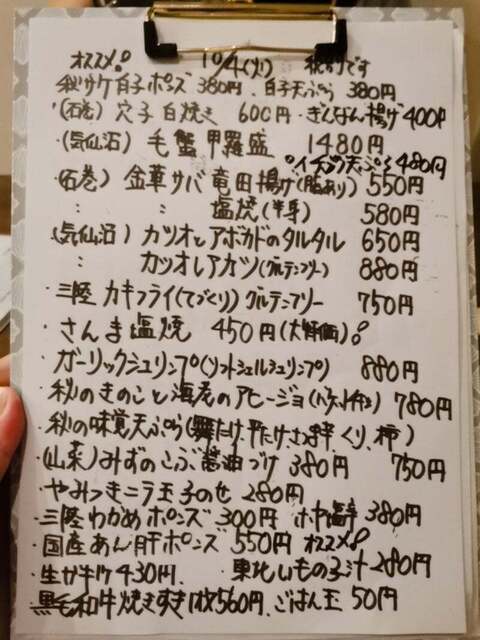 オススメ! 10/4(火) 税別です
秋サケ白子ポンズ 380円、白子天ぷら 380円
・(石巻) 穴子白焼き 600円・ぎんなん揚げ400円
・(気仙沼) 毛蟹甲羅盛 1480円
イチヂク天ぷら480円
(石巻) 金華サバ竜田揚げ(脂あり) 550円
〃 〃 塩焼(半身) 580円
(気仙沼) カツオとアボカドのタルタル 650円
〃 カツオレアカツ(グルテンフリー) 880円
・三陸カキフライ(てづくり)グルテンフリー 750円
・さんま塩焼 450円(大特価)!
・ガーリックシュリンプ(ソフトシェルシュリンプ) 880円
・秋のきのこと海老のアヒージョ(バケット付き) 780円
・秋の味覚天ぷら(舞たけ、平たけ、さつま芋、くり、柿)
・(山菜)みずのこぶ醤油づけ 380円 750円
・やみつきニラ玉子のせ 280円
・三陸わかめポンズ 300円 ホヤ塩辛 380円
・国産あん肝ポンズ 550円 オススメ!
・生ガキ1ケ430円、 東北いもの子汁280円
・黒毛和牛焼きすき1枚560円、ごはん玉 50円